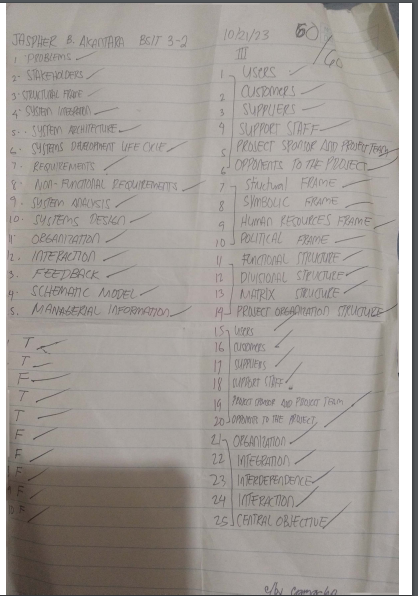 JASPHER B. AKANTARA BSIT 3-2
10/21/23
50/60
1. PROBLEMS
2. STAKEHOLDERS
3. STRUCTURAL FRAME
4. SYSTEM INTEGRATION
5. SYSTEM ARCHITECTURE
6. SYSTEMS DEVELOPMENT LIFE CYCLE
7. REQUIREMENTS
8. NON-FUNCTIONAL REQUIREMENTS
9. SYSTEM ANALYSIS
10. SYSTEMS DESIGN
11. ORGANIZATION
12. INTERACTION
3. FEEDBACK
4. SCHEMATIC MODEL
5. MANAGERIAL INFORMATION
T
T
F
T
T
F
F
F
F
F
III
1 USERS
2 CUSTOMERS
3 SUPPLIERS
4 SUPPORT STAFF
5 PROJECT SPONSOR AND PROJECT TEAM
6 OPPONENTS TO THE PROJECT
7 STUCTURAL FRAME
8 SYMBOLIC FRAME
9 HUMAN RESOURCES FRAME
10 POLITICAL FRAME
11 FUNCTIONAL STRUCTURE
12 DIVISIONAL STRUCTURE
13 MATRIX STRUCTURE
14 PROJECT ORGANIZATION STRUCTURE
15 USERS
16 CUSTOMERS
17 SUPPLIERS
18 SUPPORT STAFF
19 PROJECT SPONSOR AND PROJECT TEAM
20 OPPONENT TO THE PROJECT
21 ORGANIZATION
22 INTEGRATION
23 INTERDEPENDENCE
24 INTERACTION
25 CENTRAL OBJECTIVE